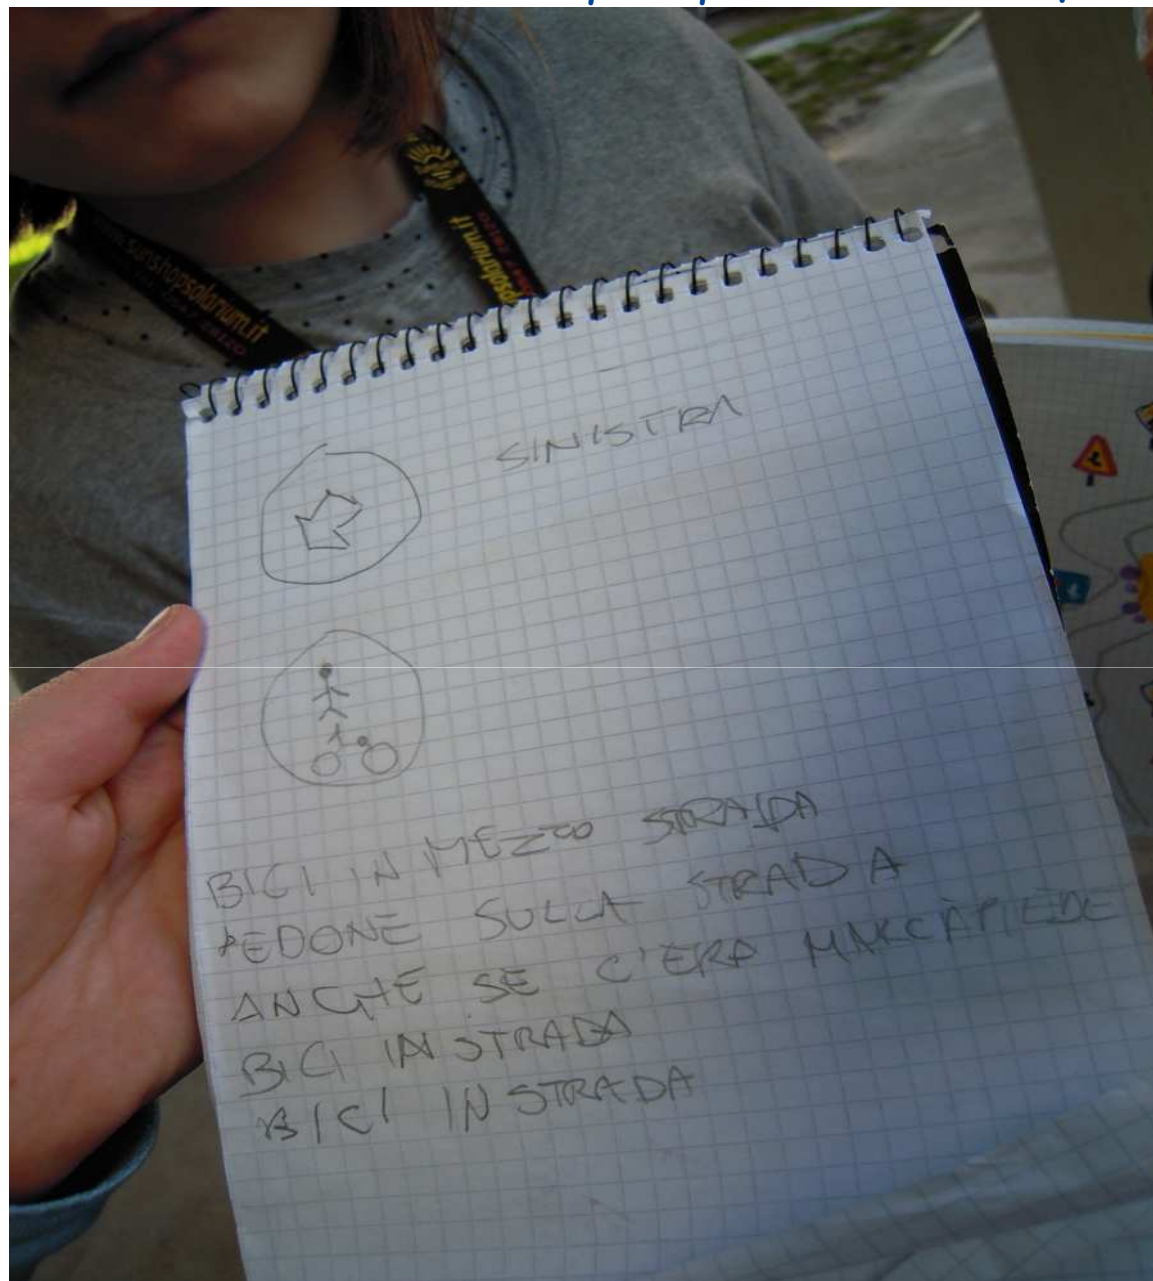 www.sunshopsolarium.it
psolarium.it
SINISTRA
BICI IN MEZZO STRADA
PEDONE SULLA STRADA
ANCHE SE C'ERA MARCAPIEDE
BICI IN STRADA
BICI IN STRADA